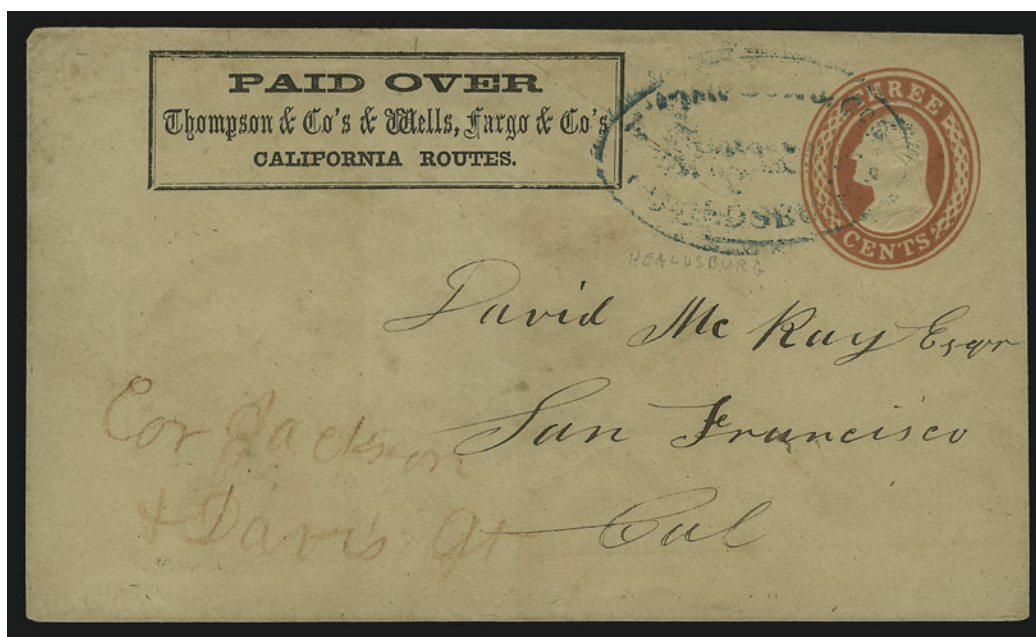 PAID OVER
Thompson & Co's & Wells, Fargo & Co's
CALIFORNIA ROUTES.
THREE
CENTS
HEALDSBURG
David Mc Kay Esqr
San Francisco
Cal
Cor Jackson
& Davis St